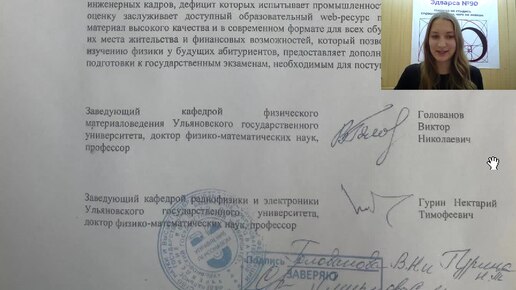 инженерных кадров, дефицит которых испытывает промышленность
оценку заслуживает доступный образовательный web-ресурс п
материал высокого качества и в современном формате для всех обу
их места жительства и финансовых возможностей, который позво
изучению физики у будущих абитуриентов, предоставляет дополн
подготовки к государственным экзаменам, необходимым для посту
Эдварса №90
Заведующий кафедрой физического
материаловедения Ульяновского государственного
университета, доктор физико-математических наук,
профессор
Голованов
Виктор
Николаевич
Заведующий кафедрой радиофизики и электроники
Ульяновского государственного университета,
доктор физико-математических наук, профессор
Гурин Нектарий
Тимофеевич
Подпись Голованова В.Н и Гурина
Н.Т.
ЗАВЕРЯЮ